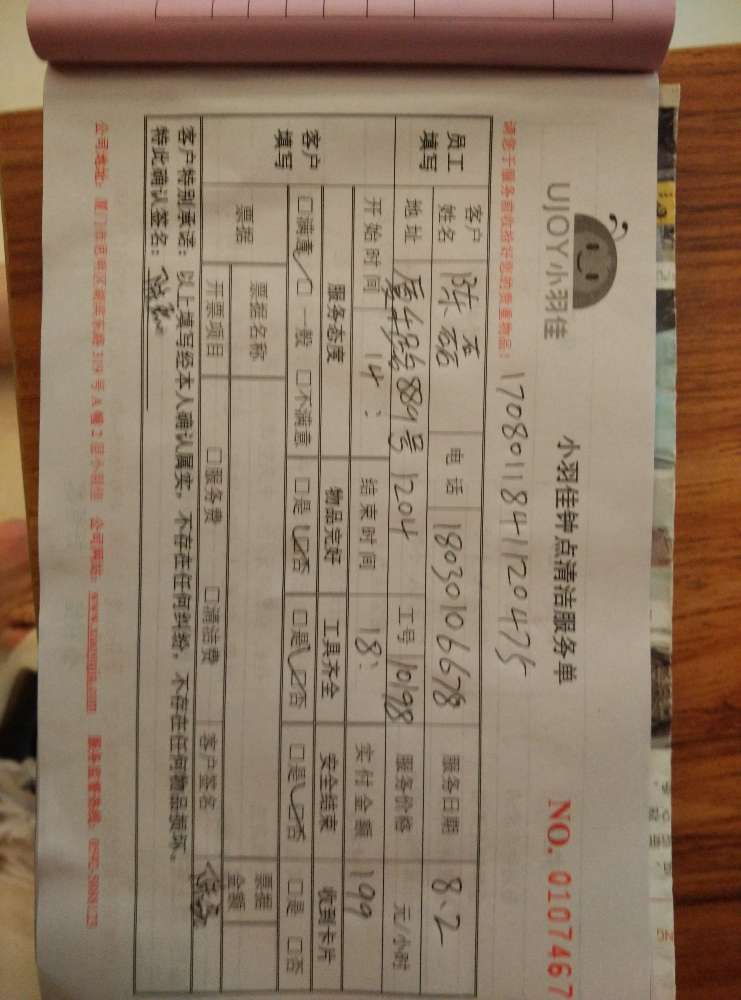 UJOY小羽佳
小羽佳钟点清洁服务单
NO. 0107467
请您于服务前收拾好您的贵重物品!
1708011841120475
员工填写
客户姓名 陈 电话 18030106678 服务日期 8.2
地址 889号 1204 工号 10198 服务价格 元/小时
开始时间 14: 结束时间 18: 实付金额 199
客户填写
服务态度 物品完好 工具齐全 安全结束 收到卡片
□满意 □一般 □不满意 □是 □否 □是 □否 □是 □否 □是 □否
票据 票据名称 票据金额
开票项目 □服务费 □清洁费 客户签名
客户特别承诺:以上填写经本人确认属实,不存在任何纠纷,不存在任何物品损坏。
特此确认签名:
公司地址: 厦门市思明区 319号A幢2层小羽佳 公司网址: www.xiaoyujia.com 服务监督热线: